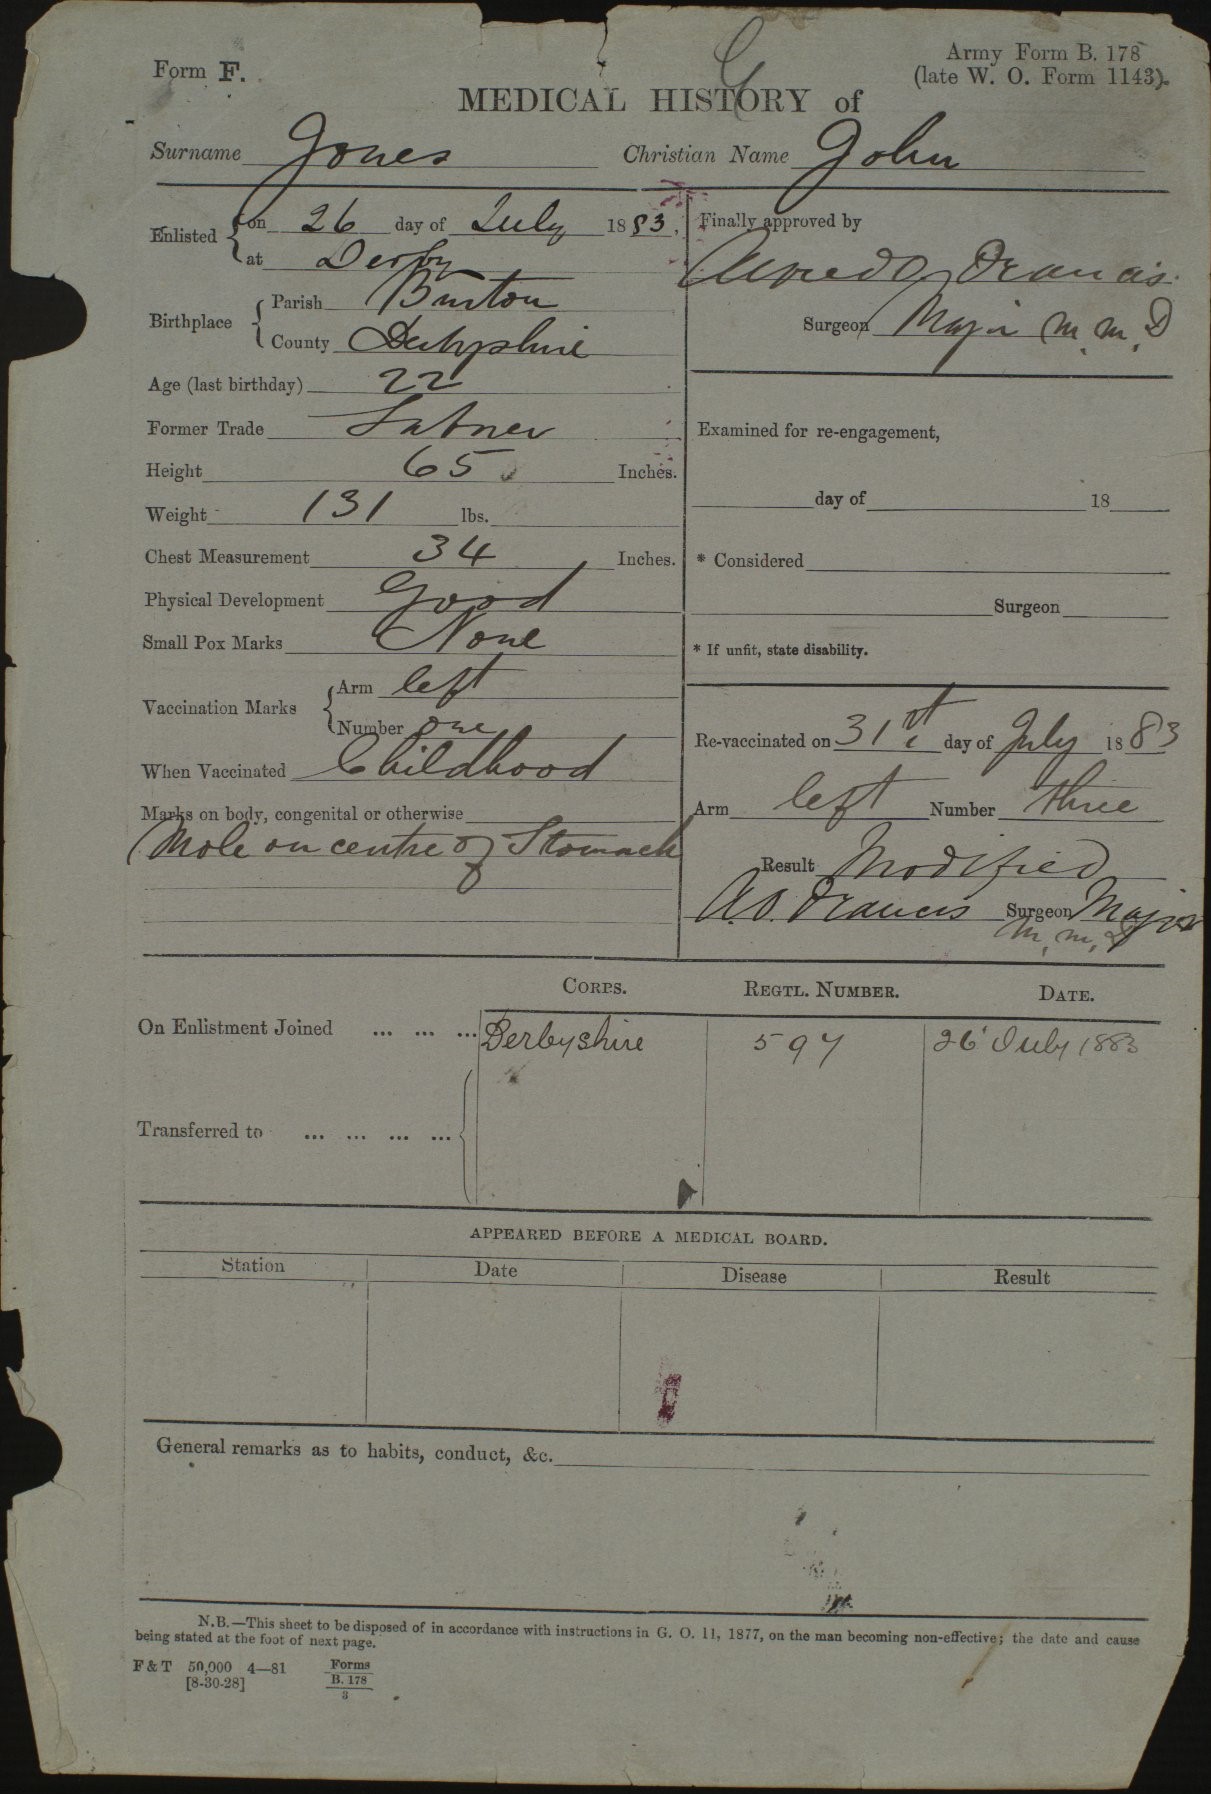 Form F.
Army Form B. 178
(late W. O. Form 1143).
MEDICAL HISTORY of
Surname Jones Christian Name John
Enlisted { on 26 day of July 1883.
at Derby
Birthplace { Parish Burton
County Derbyshire
Age (last birthday) 22
Former Trade
Height 65 Inches.
Weight 131 lbs.
Chest Measurement 34 Inches.
Physical Development Good
Small Pox Marks None
Vaccination Marks { Arm left
Number one
When Vaccinated Childhood
Marks on body, congenital or otherwise
Mole on centre of Stomach
Finally approved by
Alfred O Francis
Surgeon Major M.M.D
Examined for re-engagement,
day of 18
* Considered
Surgeon
* If unfit, state disability.
Re-vaccinated on 31st day of July 1883
Arm left Number three
Result Modified
A.O. Francis Surgeon Major
M.M.D
CORPS. REGTL. NUMBER. DATE.
On Enlistment Joined ... ... ... Derbyshire 597 26 July 1883
Transferred to ... ... ... ...
APPEARED BEFORE A MEDICAL BOARD.
Station Date Disease Result
General remarks as to habits, conduct, &c.
N.B.—This sheet to be disposed of in accordance with instructions in G. O. 11, 1877, on the man becoming non-effective; the date and cause
being stated at the foot of next page.
F & T 50,000 4—81 Forms
[8-30-28] B. 178
3